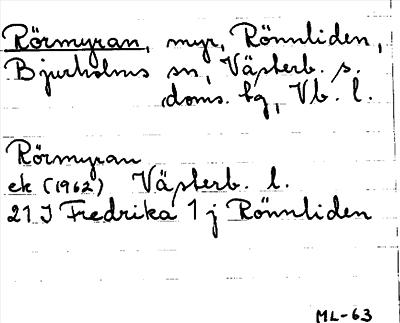 Rörmyran, myr, Rönnliden,
Bjurholms sn, Västerb. s.
doms. tg, Vb. l.
Rörmyran
ek (1962) Västerb. l.
21 J Fredrika 1 j Rönnliden
ML-63